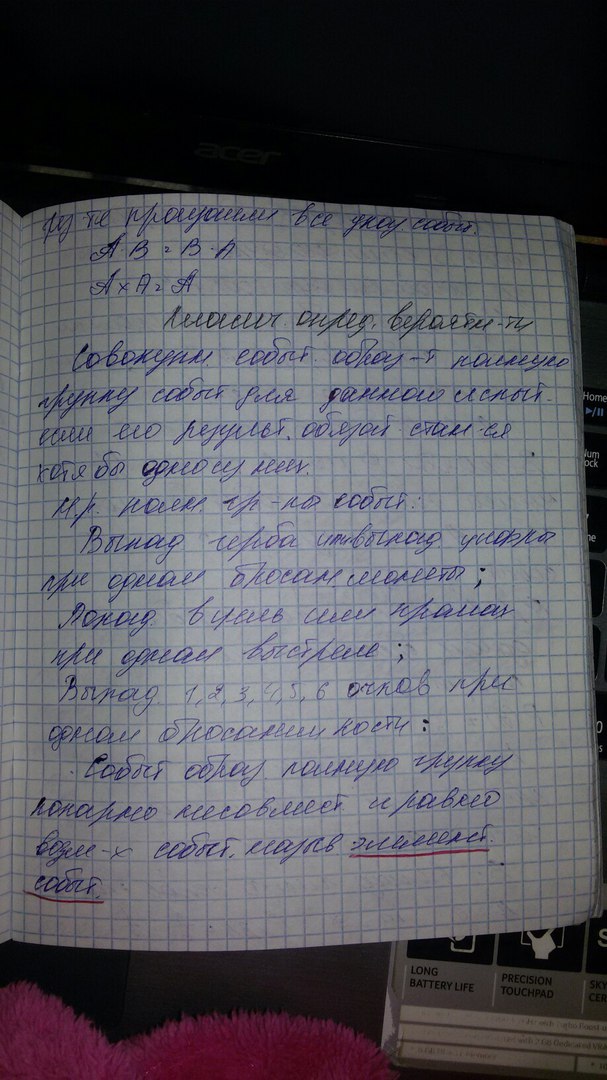 acer
рез-те произошли все эти событ.
А В = В · А
А х А = А
Классич. опред. вероятн-ти
Совокупн событ. образ-т полную
группу событ для данного испыт.
если его результ. обязат. стан-ся
хотя бы одно из них.
Пр. полн. гр-пы событ:
Выпад герба или выпад цифры
при одном бросан. монеты;
Попад в цель или промах
при одном выстреле;
Выпад. 1, 2, 3, 4, 5, 6 очков при
одном бросании кости:
Событ образ. полную группу
попарно несовмест и равно
возм-х событ. назыв элемент.
событ.
Home
Num
LONG
BATTERY LIFE
PRECISION
TOUCHPAD